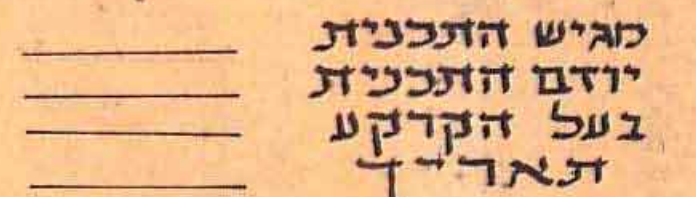 מגיש התכנית
יוזם התכנית
בעל הקרקע
תאריך